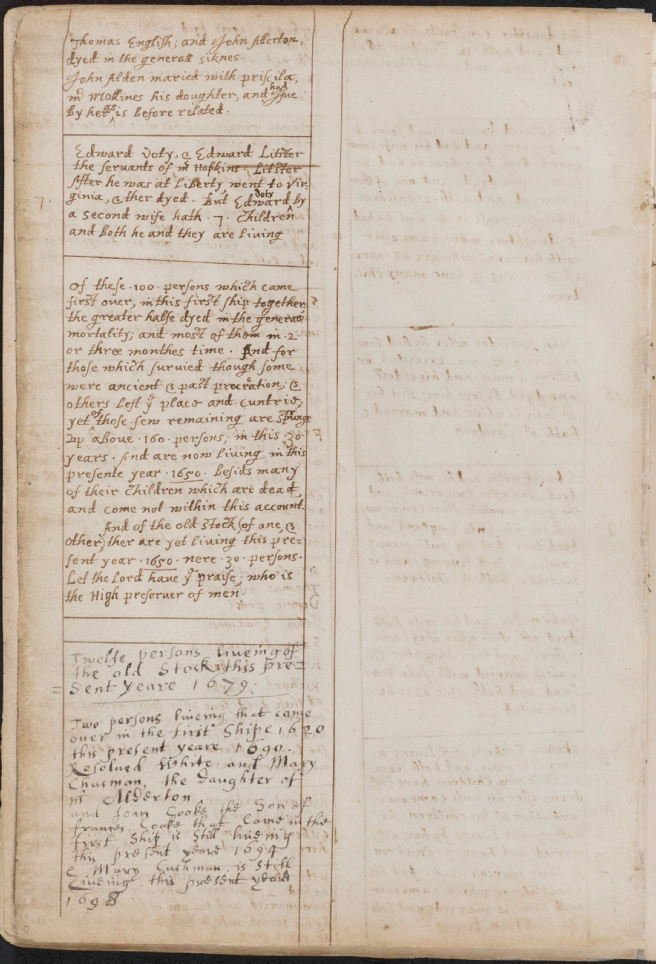 Thomas English; and John Allerton,
dyed in the generall siknes.
John Alden maried with priscila,
mr Mollines his doughter, and had Isue
by her as is before related.
Edward Doty, & Edward Litster
the servants of mr Hopkins. Litster
After he was at Liberty, went to Vir-
7 ginia, & ther dyed. But Edward doty by
a second wife hath .7. children
and both he and they are living
Of these .100. persons which came
first over, in this first ship together
the greater halfe dyed in the generall
mortality; and most of them in .2.
or three monthes time. And for
those which survied though some
were ancient & past procration; &
others left ye place and cuntrie,
yet of those few remaining are sprunge
up above .160. persons; in this .30.
years. And are now living in this
presente year .1650. besids many
of their children which are dead,
and come not within this account.
And of the old stock, (of one, &
other) ther are yet living this pre-
sent year .1650. nere .30. persons.
Let the Lord have ye praise; who is
the High preserver of men.
Twelfe persons liveing of
the old stock this pre=
= sent yeare 1679.
Two persons liveing that came
over in the first Shipe 1620
this present yeare 1690.
Resolved White and Mary
Chusman, the Daughter of
mr Alderton
and John Cooke the Son of
frances Cooke that Came in the
first Ship is Still liveing
this present yeare 1694
& Mary Cushman is Still
Living this present year
1698